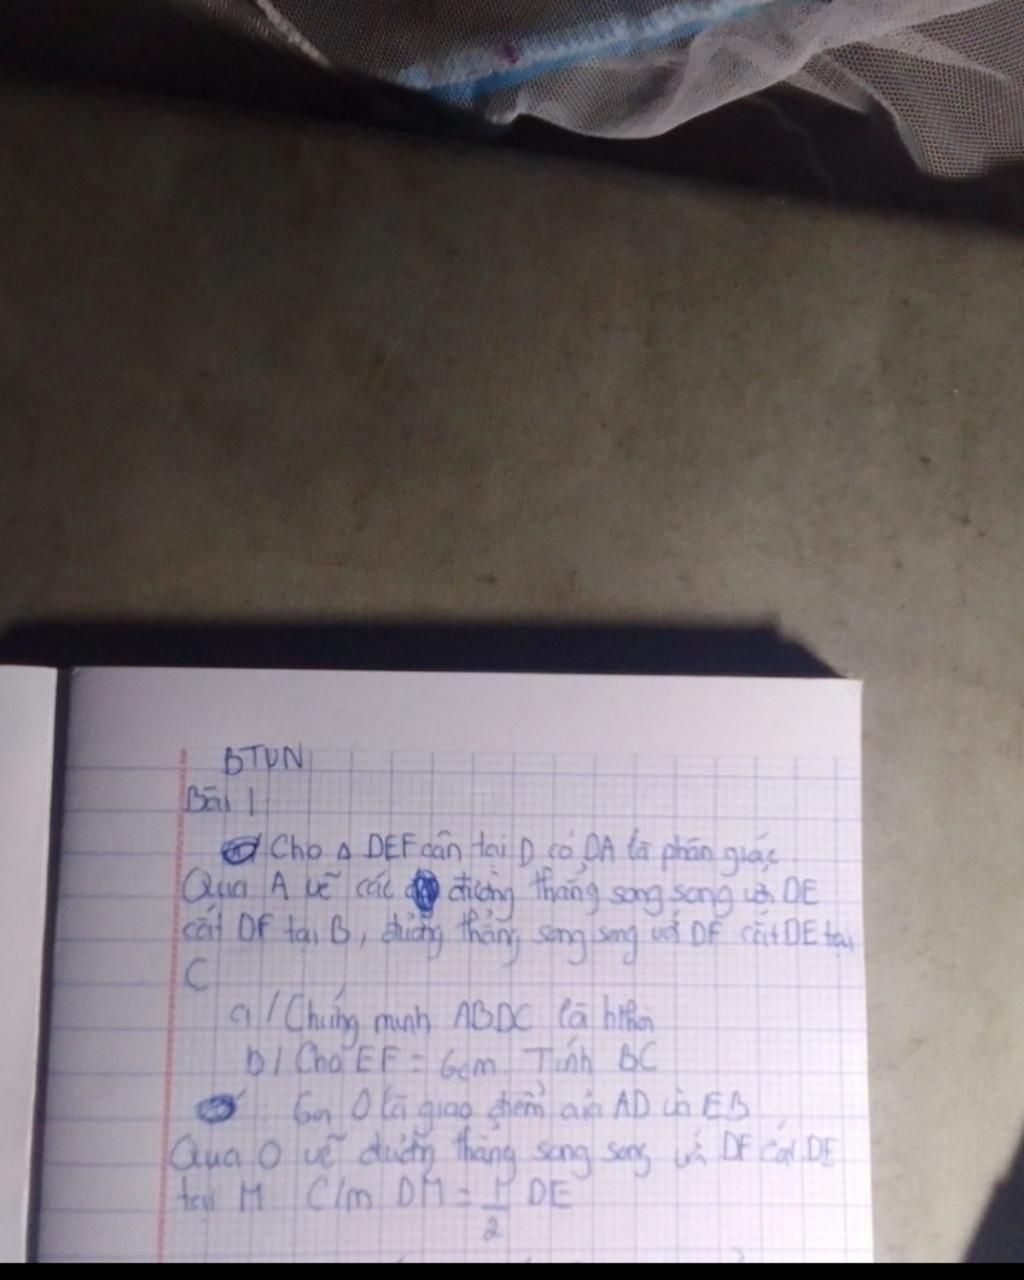 BTVN
Bài 1:
Cho Δ DEF cân tại D có DA là phân giác
Qua A vẽ các đường thẳng song song với DE
cắt DF tại B, đường thẳng song song với DF cắt DE tại
C
a/ Chứng minh ABDC là hthoi
b/ Cho EF = 6cm. Tính BC
Gọi O là giao điểm của AD và EB
Qua O vẽ đường thẳng song song với DF cắt DE
tại M C/m DM = 1/2 DE